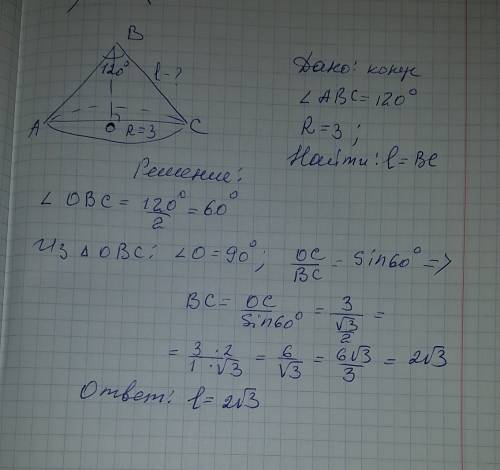 B
120°
l-?
A
O
R=3
C
Дано: конус
∠ABC=120°
R=3;
Найти: l=BC
Решение:
∠OBC = 120°/2 = 60°
Из ΔOBC: ∠O=90°; OC/BC = Sin60° =>
BC = OC/Sin60° = 3/(√3/2) =
= 3·2/1·√3 = 6/√3 = 6√3/3 = 2√3
Ответ: l=2√3